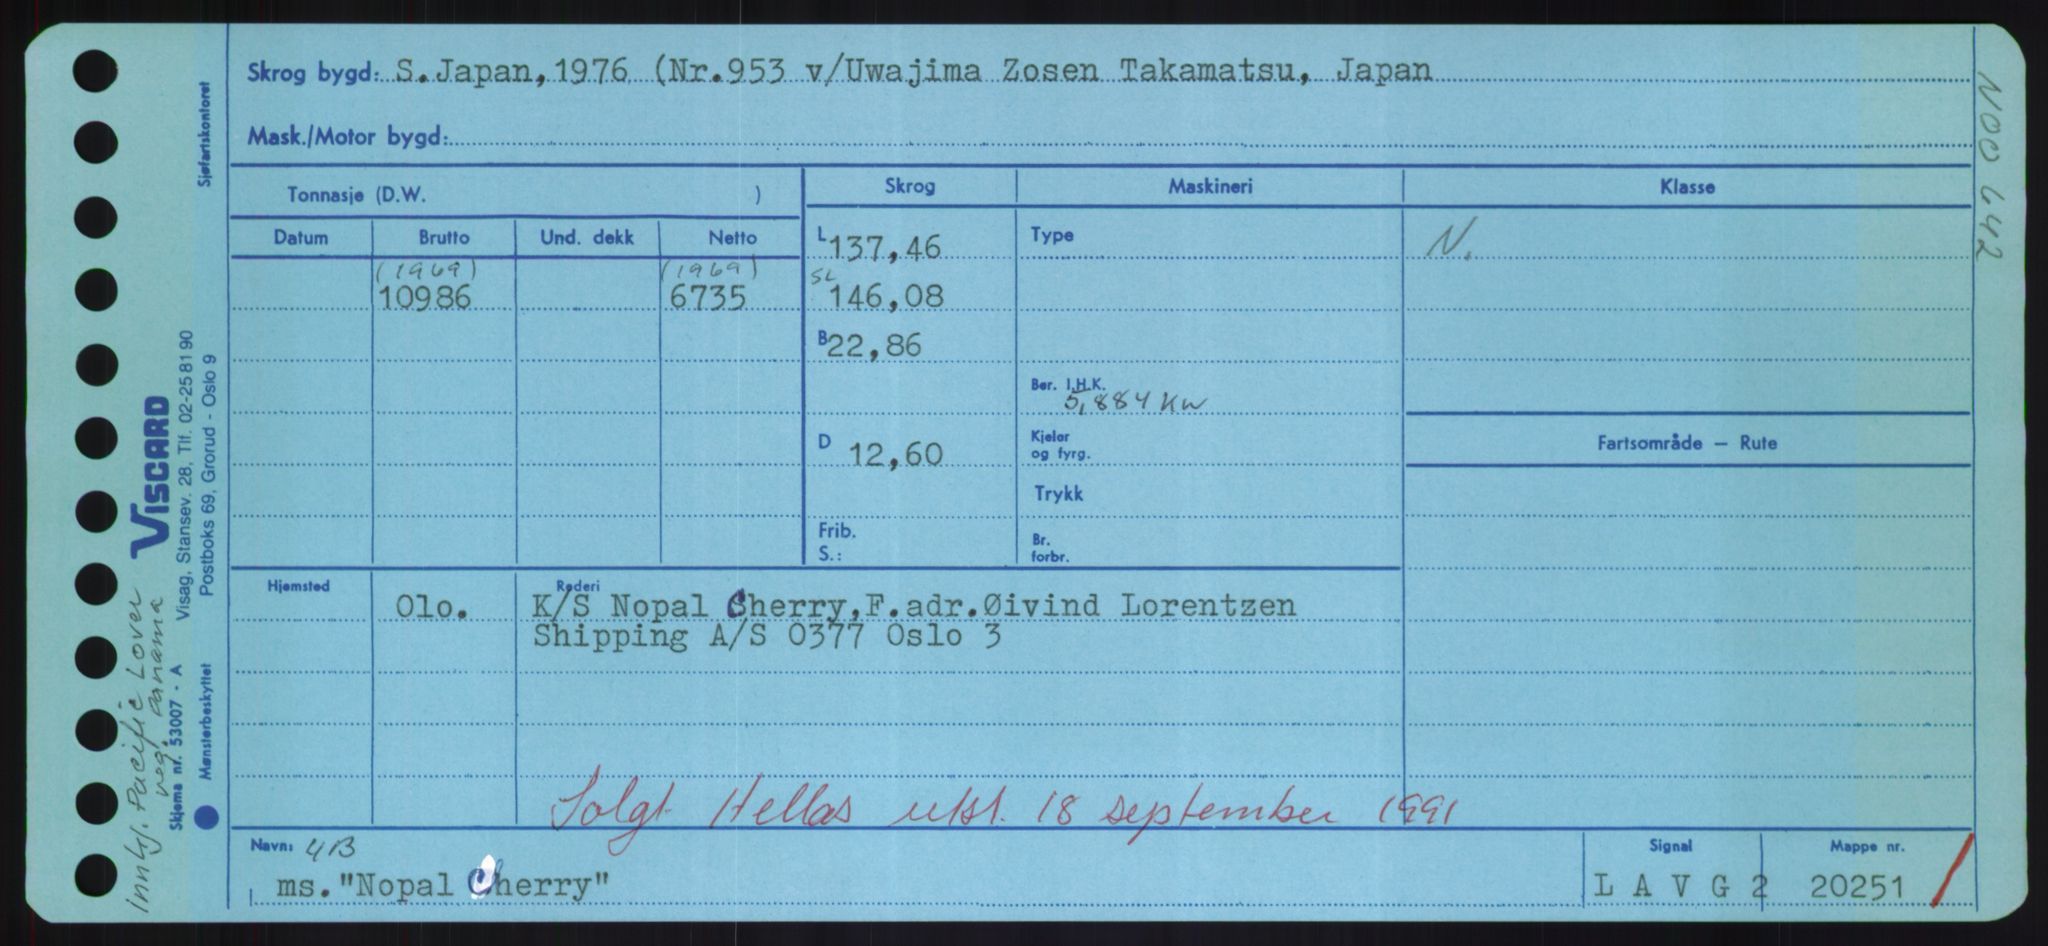 Skrog bygd: S.Japan,1976 (Nr.953 v/Uwajima Zosen Takamatsu, Japan
Mask./Motor bygd:
Tonnasje (D.W. )
Datum Brutto Und. dekk Netto
(1969) (1969)
10986 6735
Skrog Maskineri Klasse
L 137,46 Type N.
SL 146,08
B 22,86
Ber. I.H.K.
5,884 KW
D 12,60
Kjeler
og fyrg.
Trykk
Frib.
S.:
Br.
forbr.
Fartsområde — Rute
Hjemsted Rederi
Olo. K/S Nopal Cherry,F.adr.Øivind Lorentzen
Shipping A/S 0377 Oslo 3
Solgt Hellas utsl. 18 september 1991
Navn: 4B
ms."Nopal Cherry"
Signal
L A V G 2
Mappe nr.
20251
N00 642
Sjøfartskontoret
VISCARD
Visag, Stansev. 28, Tlf. 02-25 81 90
Postboks 69, Grorud - Oslo 9
Skjema nr. 53007 - A
Mønsterbeskyttet
innkj. Pacific Lover
reg. Panama